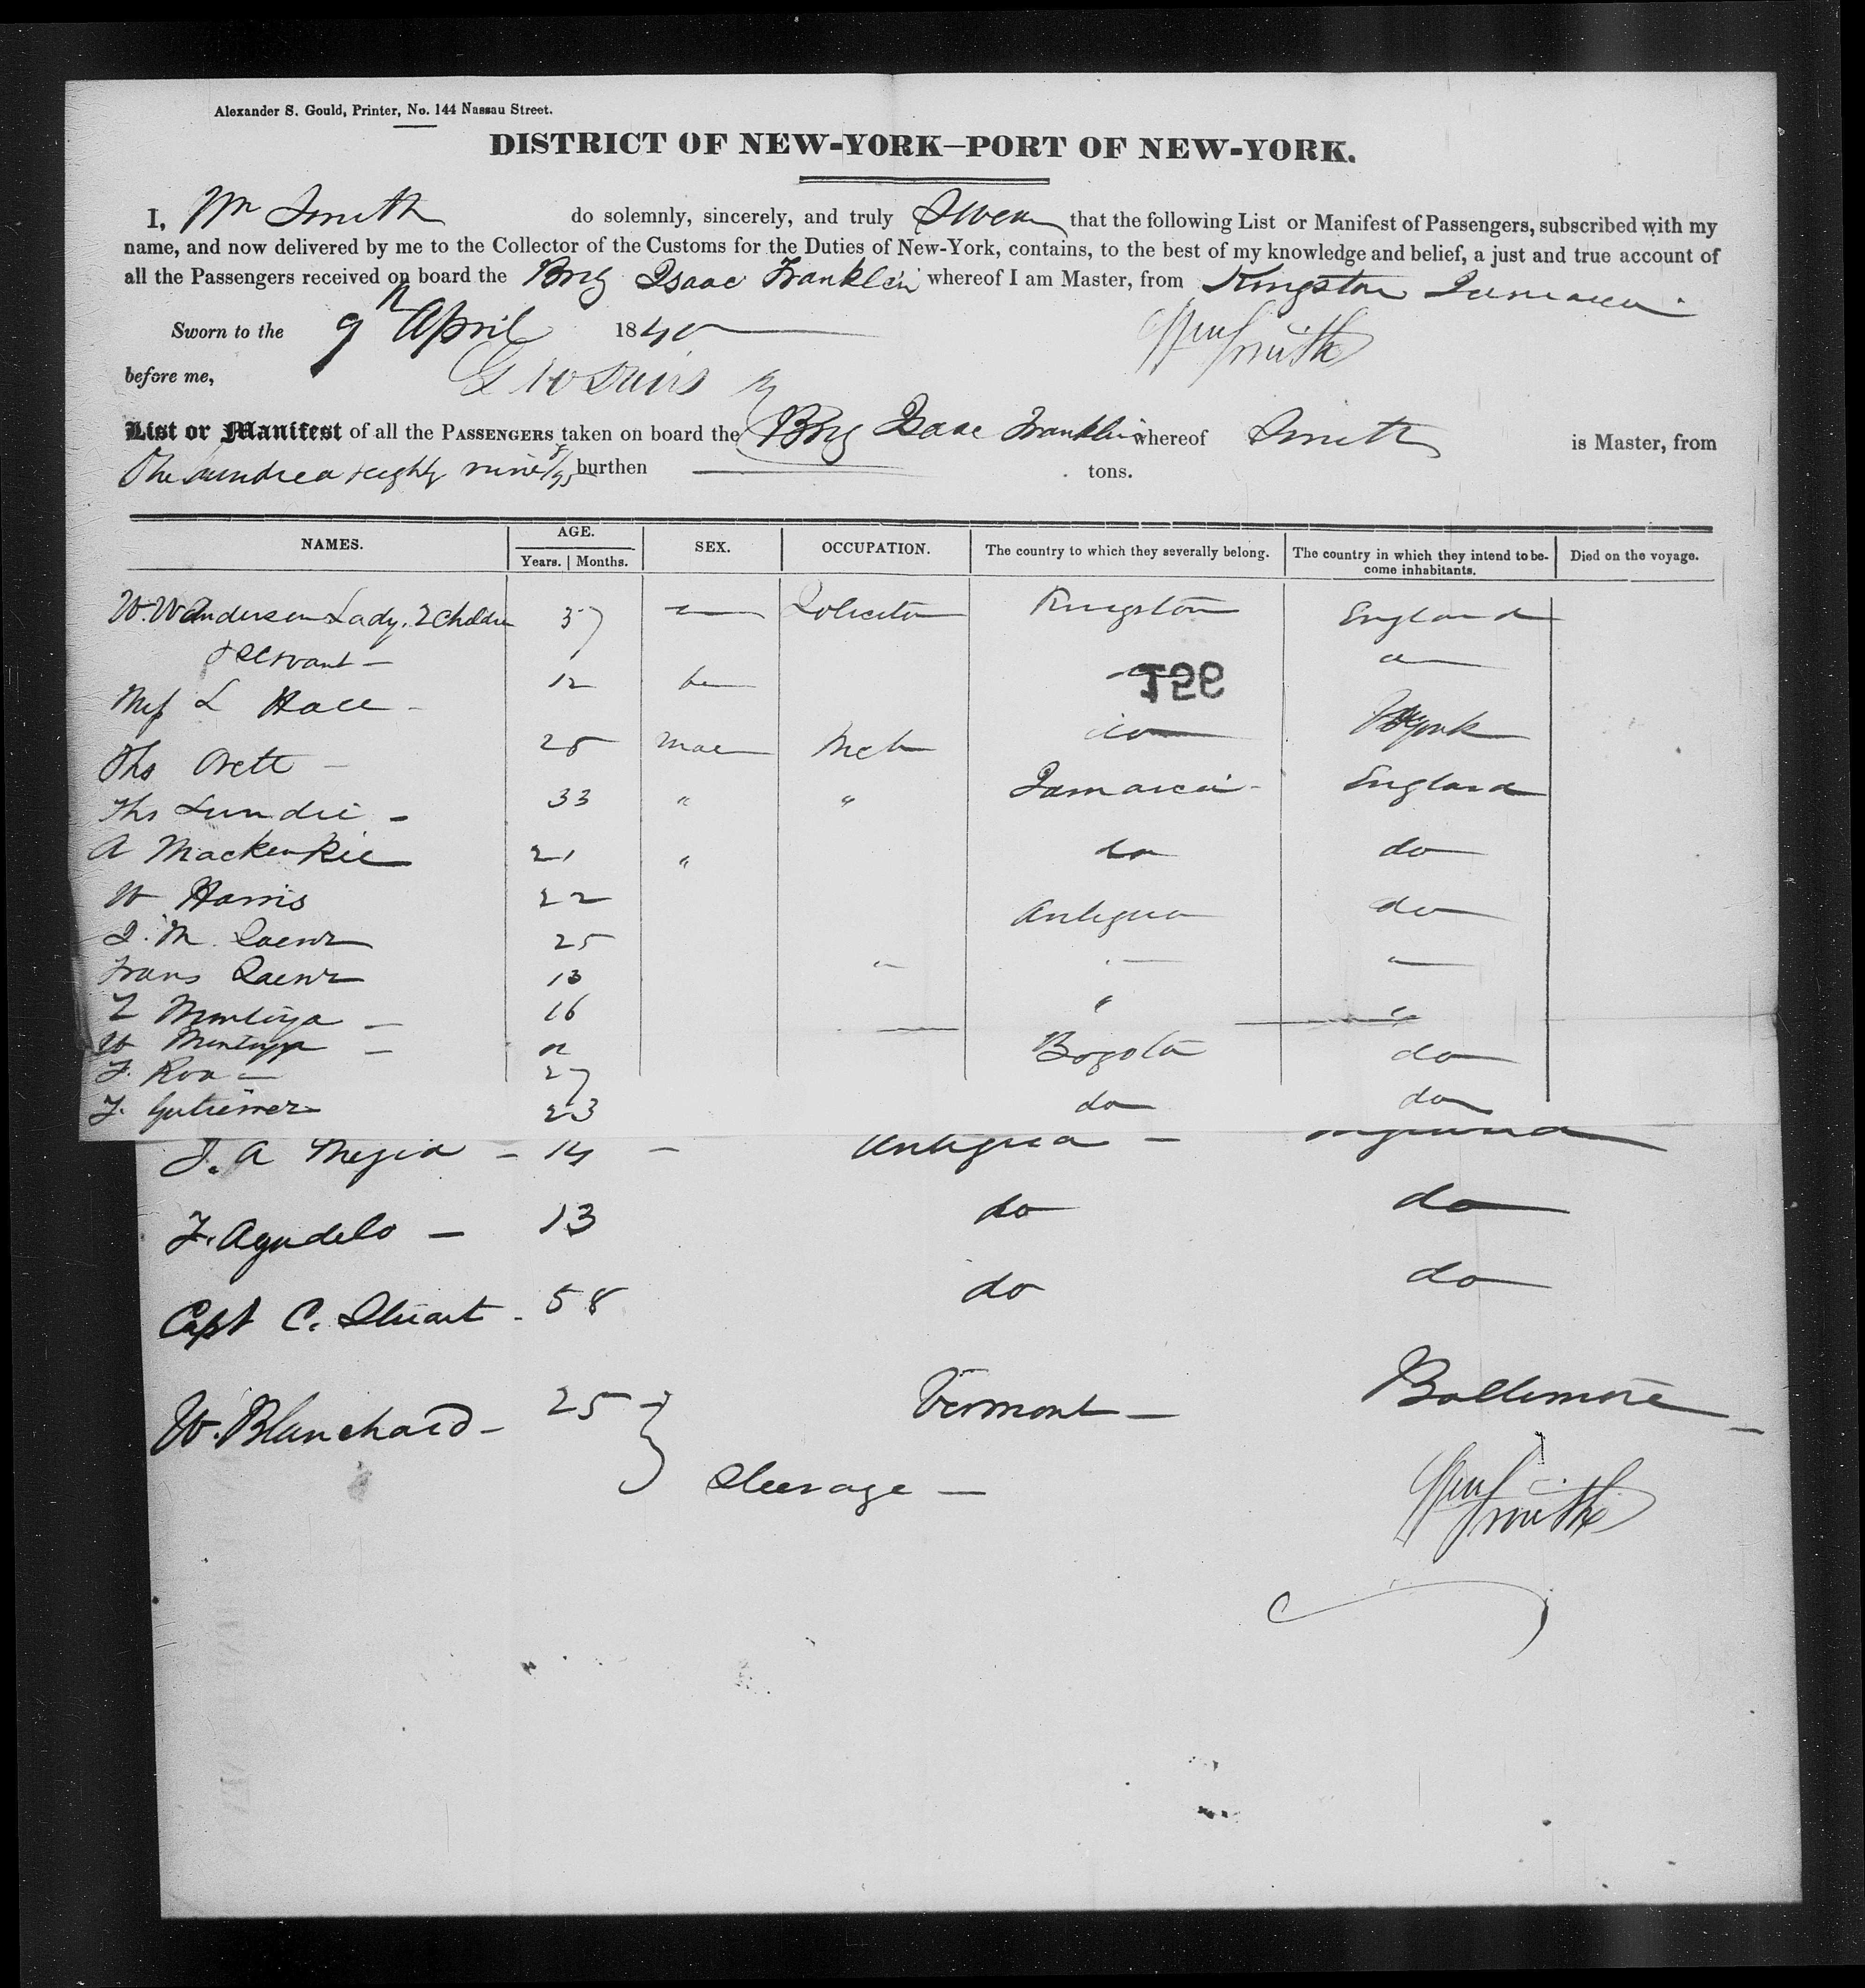 Alexander S. Gould, Printer, No. 144 Nassau Street.
DISTRICT OF NEW-YORK—PORT OF NEW-YORK.
I, Wm Smith do solemnly, sincerely, and truly Swear that the following List or Manifest of Passengers, subscribed with my
name, and now delivered by me to the Collector of the Customs for the Duties of New-York, contains, to the best of my knowledge and belief, a just and true account of
all the Passengers received on board the Brig Isaac Franklin whereof I am Master, from Kingston Jamaica
Sworn to the 9th April 1840
Wm Smith
before me,
List or Manifest of all the PASSENGERS taken on board the Brig Isaac Franklin whereof Smith is Master, from
One hundred & eighty nine burthen tons.
NAMES. AGE. SEX. OCCUPATION. The country to which they severally belong. The country in which they intend to be- Died on the voyage.
Years. Months. come inhabitants.
W. W Anderson Lady. 2 Children 37 Solicitor Kingston England
& Servant —
Miss L Hall - 12
Ths — 25 Male Mcht do N York
Ths Lundie - 33 " " Jamaica - England
A MacKenzie 21 " do do
W Harris 22 Antigua do
J. M. 25
Frans 13
Montoya — 16 "
W Montoya — Bogota do
F. Roa — 27
F. Gutierrez 23 do do
J. A Megia - 14 - Antigua - England
F. Agudelo — 13 do do
Capt C. Stuart - 58 do do
W. Blanchard - 25 Vermont — Baltimore
Steerage —
Wm Smith